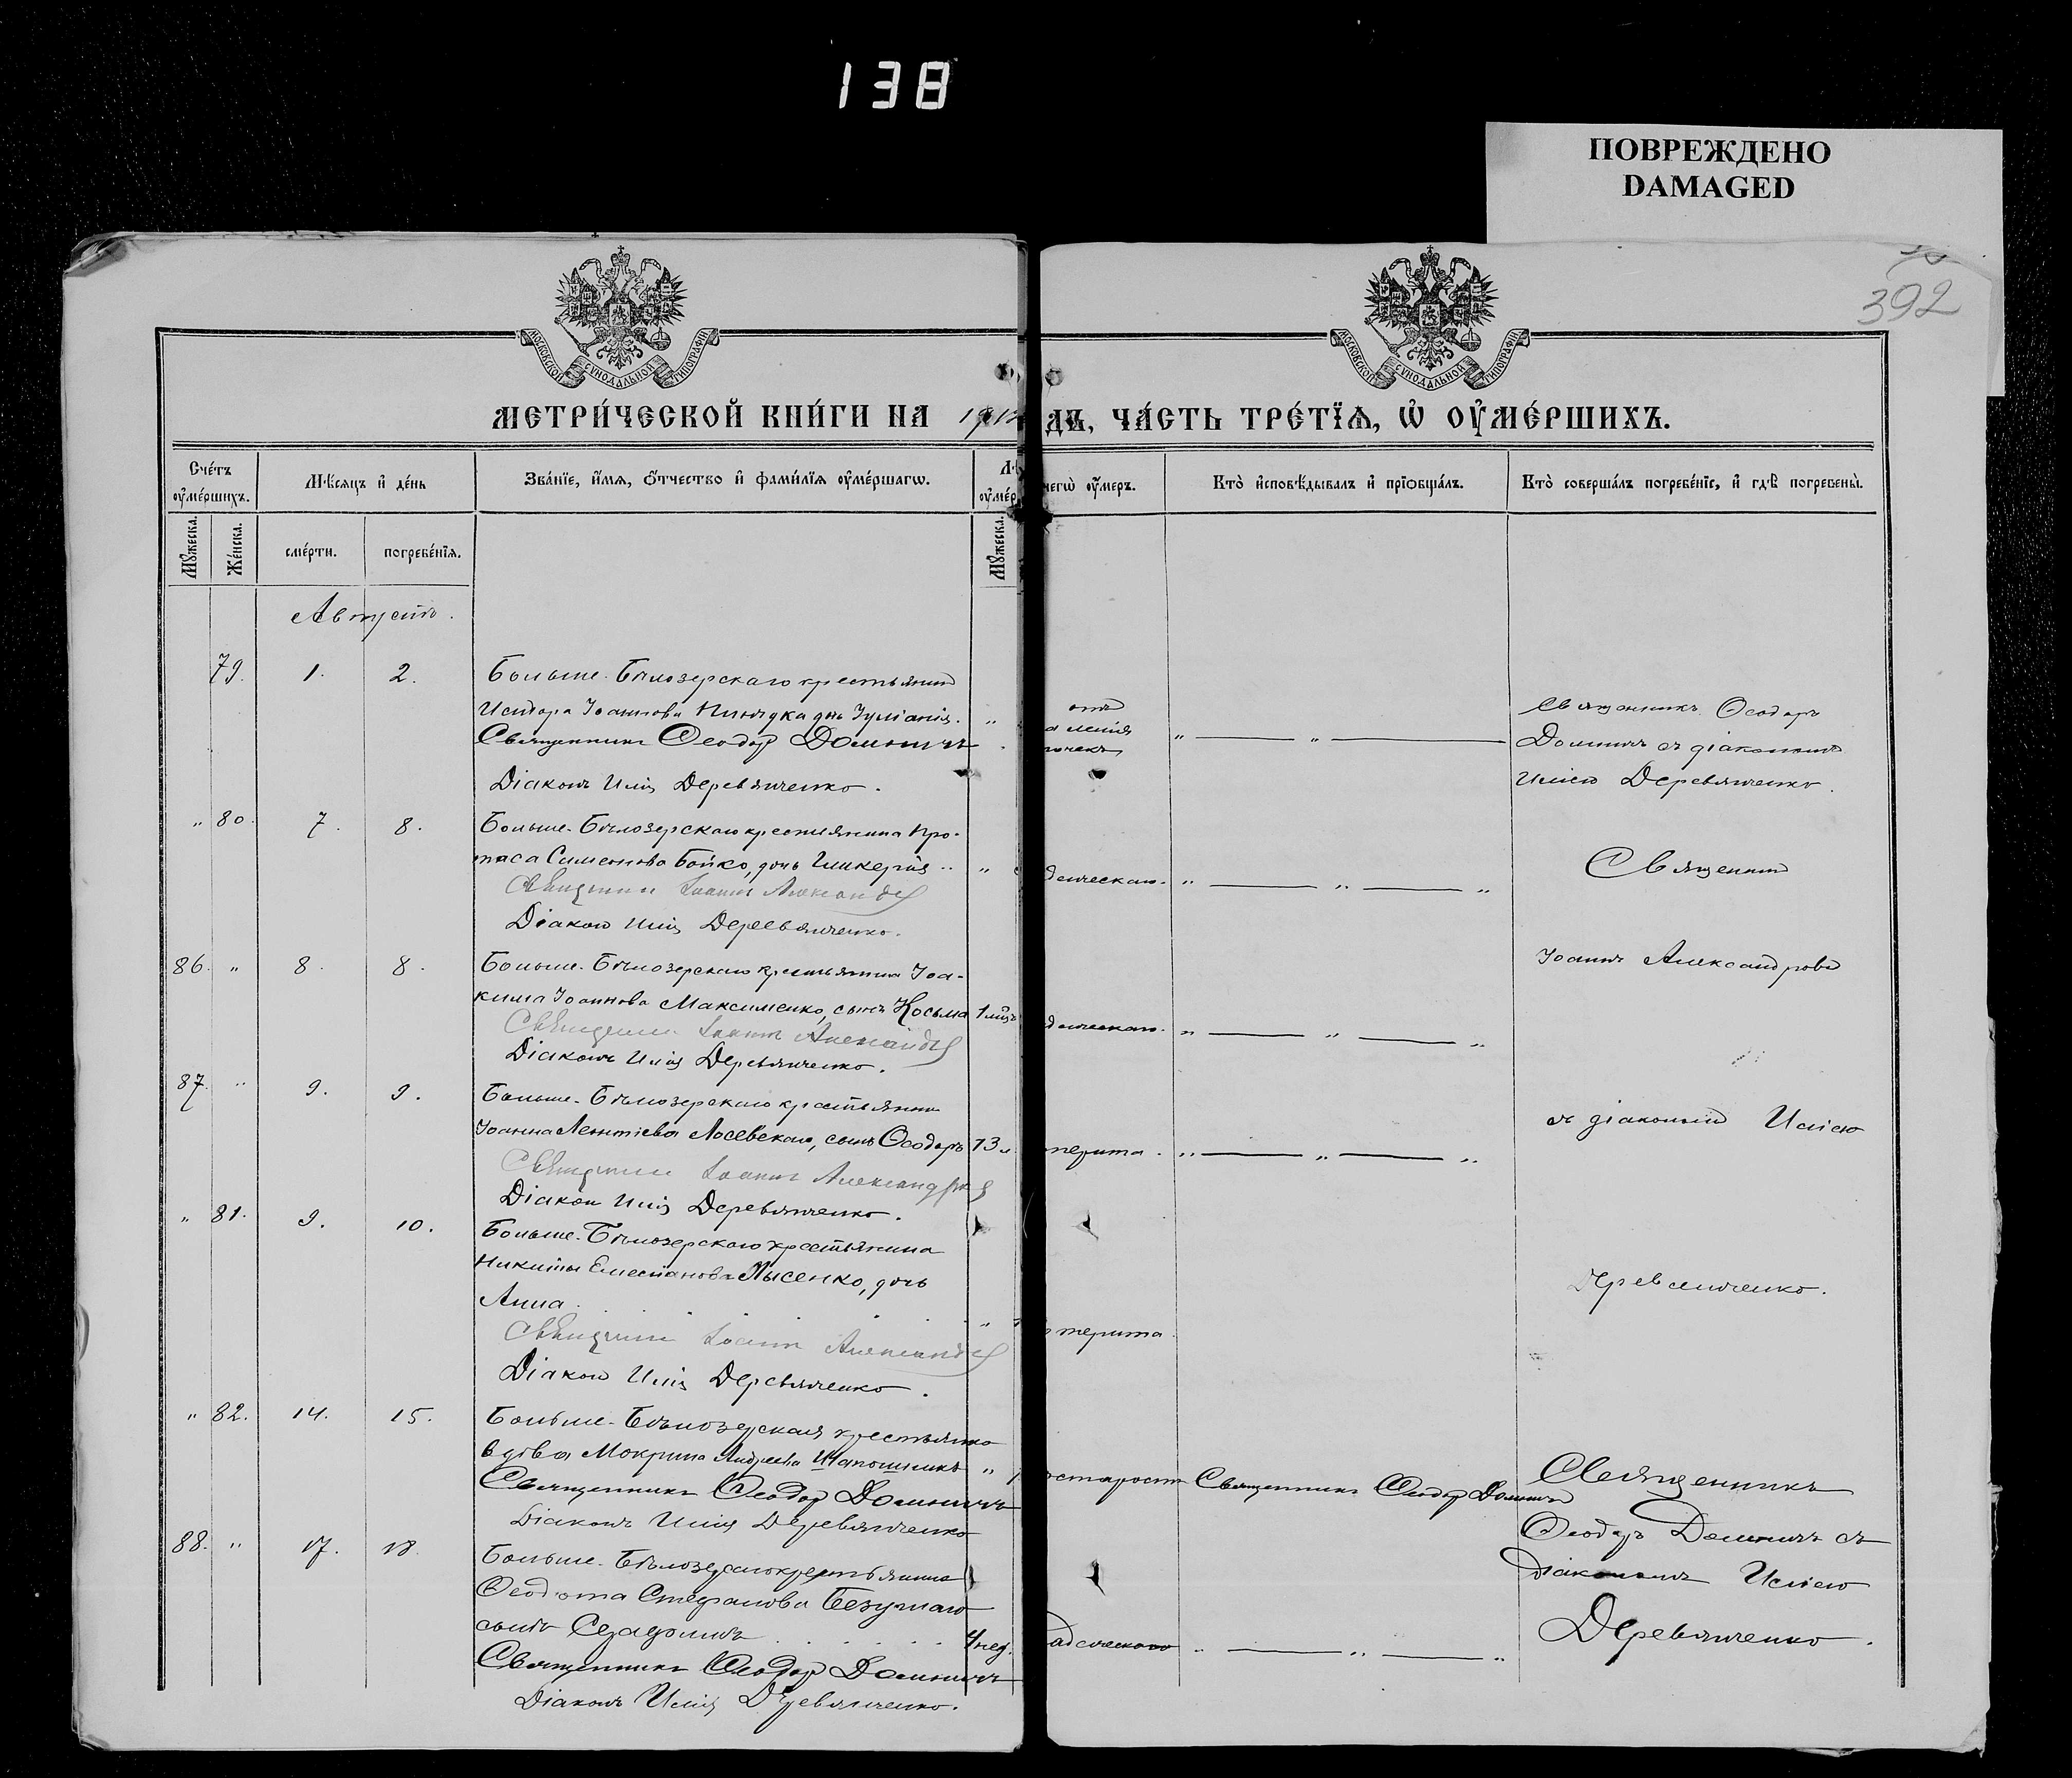 138
ПОВРЕЖДЕНО
DAMAGED
392
МОСКОВСКОЙ СѴНОДАЛЬНОЙ ТИПОГРАФІИ
МОСКОВСКОЙ СѴНОДАЛЬНОЙ ТИПОГРАФІИ
МЕТРИ́ЧЕСКОЙ КНИ́ГИ НА 1912
ДЪ, ЧА́СТЬ ТРЕ́ТЇѦ, Ѡ҆ ОУ҆МЕ́РШИХЪ.
Сче́тъ оу҆ме́ршихъ.
Мѣ́сяцъ и҆ де́нь
Зва́нїе, и҆́мѧ, ѻ҆́тчество и҆ фами́лїѧ оу҆ме́ршагѡ.
чегѡ̀ оу҆́меръ.
Кто̀ и҆сповѣ́дывалъ и҆ прїѡбща́лъ.
Кто̀ соверша́лъ погребе́нїе, и҆ гдѣ̀ погребены̀.
Мꙋ́жеска.
Же́нска.
сме́рти.
погребе́нїѧ.
Мꙋ́жеска.
Августъ.
79. 1. 2. Больше-Бѣлозерскаго крестьянина
Исидора Іоаннова дочь Іуліанія. „
Священникъ Ѳеодоръ Доминичъ
Діаконъ Илія Деревянченко.
отъ
„ — „ —
Священникъ Ѳеодоръ
Доминичъ съ діакономъ
Иліею Деревянченко.
„ 80. 7. 8. Больше-Бѣлозерскаго крестьянина Про-
таса Симеонова Бойко, дочь Гликерія „
Священникъ Іоаннъ Александровъ
Діаконъ Илія Деревянченко.
„ — „ — „
Священникъ
86. „ 8. 8. Больше-Бѣлозерскаго крестьянина Іоа-
кима Іоаннова Максименко, сынъ Косьма 1 мѣс.
Священникъ Іоаннъ Александровъ
Діаконъ Илія Деревянченко.
„ — „ — „
Іоаннъ Александровъ
87. „ 9. 9. Больше-Бѣлозерскаго крестьянина
Іоанна Леонтіева Лосевскаго, сынъ Ѳеодоръ 13
Священникъ Іоаннъ Александровъ
Діаконъ Илія Деревянченко.
терита. „ — „ — „
съ діакономъ Иліею
„ 81. 9. 10. Больше-Бѣлозерскаго крестьянина
Никиты Емеліанова Лысенко, дочь
Анна
Священникъ Іоаннъ Александровъ
Діаконъ Илія Деревянченко.
терита
Деревянченко.
„ 82. 14. 15. Больше-Бѣлозерская крестьянка
вдова Мокрина Андреева Шапошникъ „
Священникъ Ѳеодоръ Доминичъ
Діаконъ Илія Деревянченко
старости Священникъ Ѳеодоръ Доминичъ
Священникъ
Ѳеодоръ Доминичъ съ
діакономъ Иліею
Деревянченко.
88. „ 17. 18. Больше-Бѣлозерскаго крестьянина
Ѳеодота Стефанова
сынъ 4 нед.
Священникъ Ѳеодоръ Доминичъ
Діаконъ Илія Деревянченко.
„ — „ — „